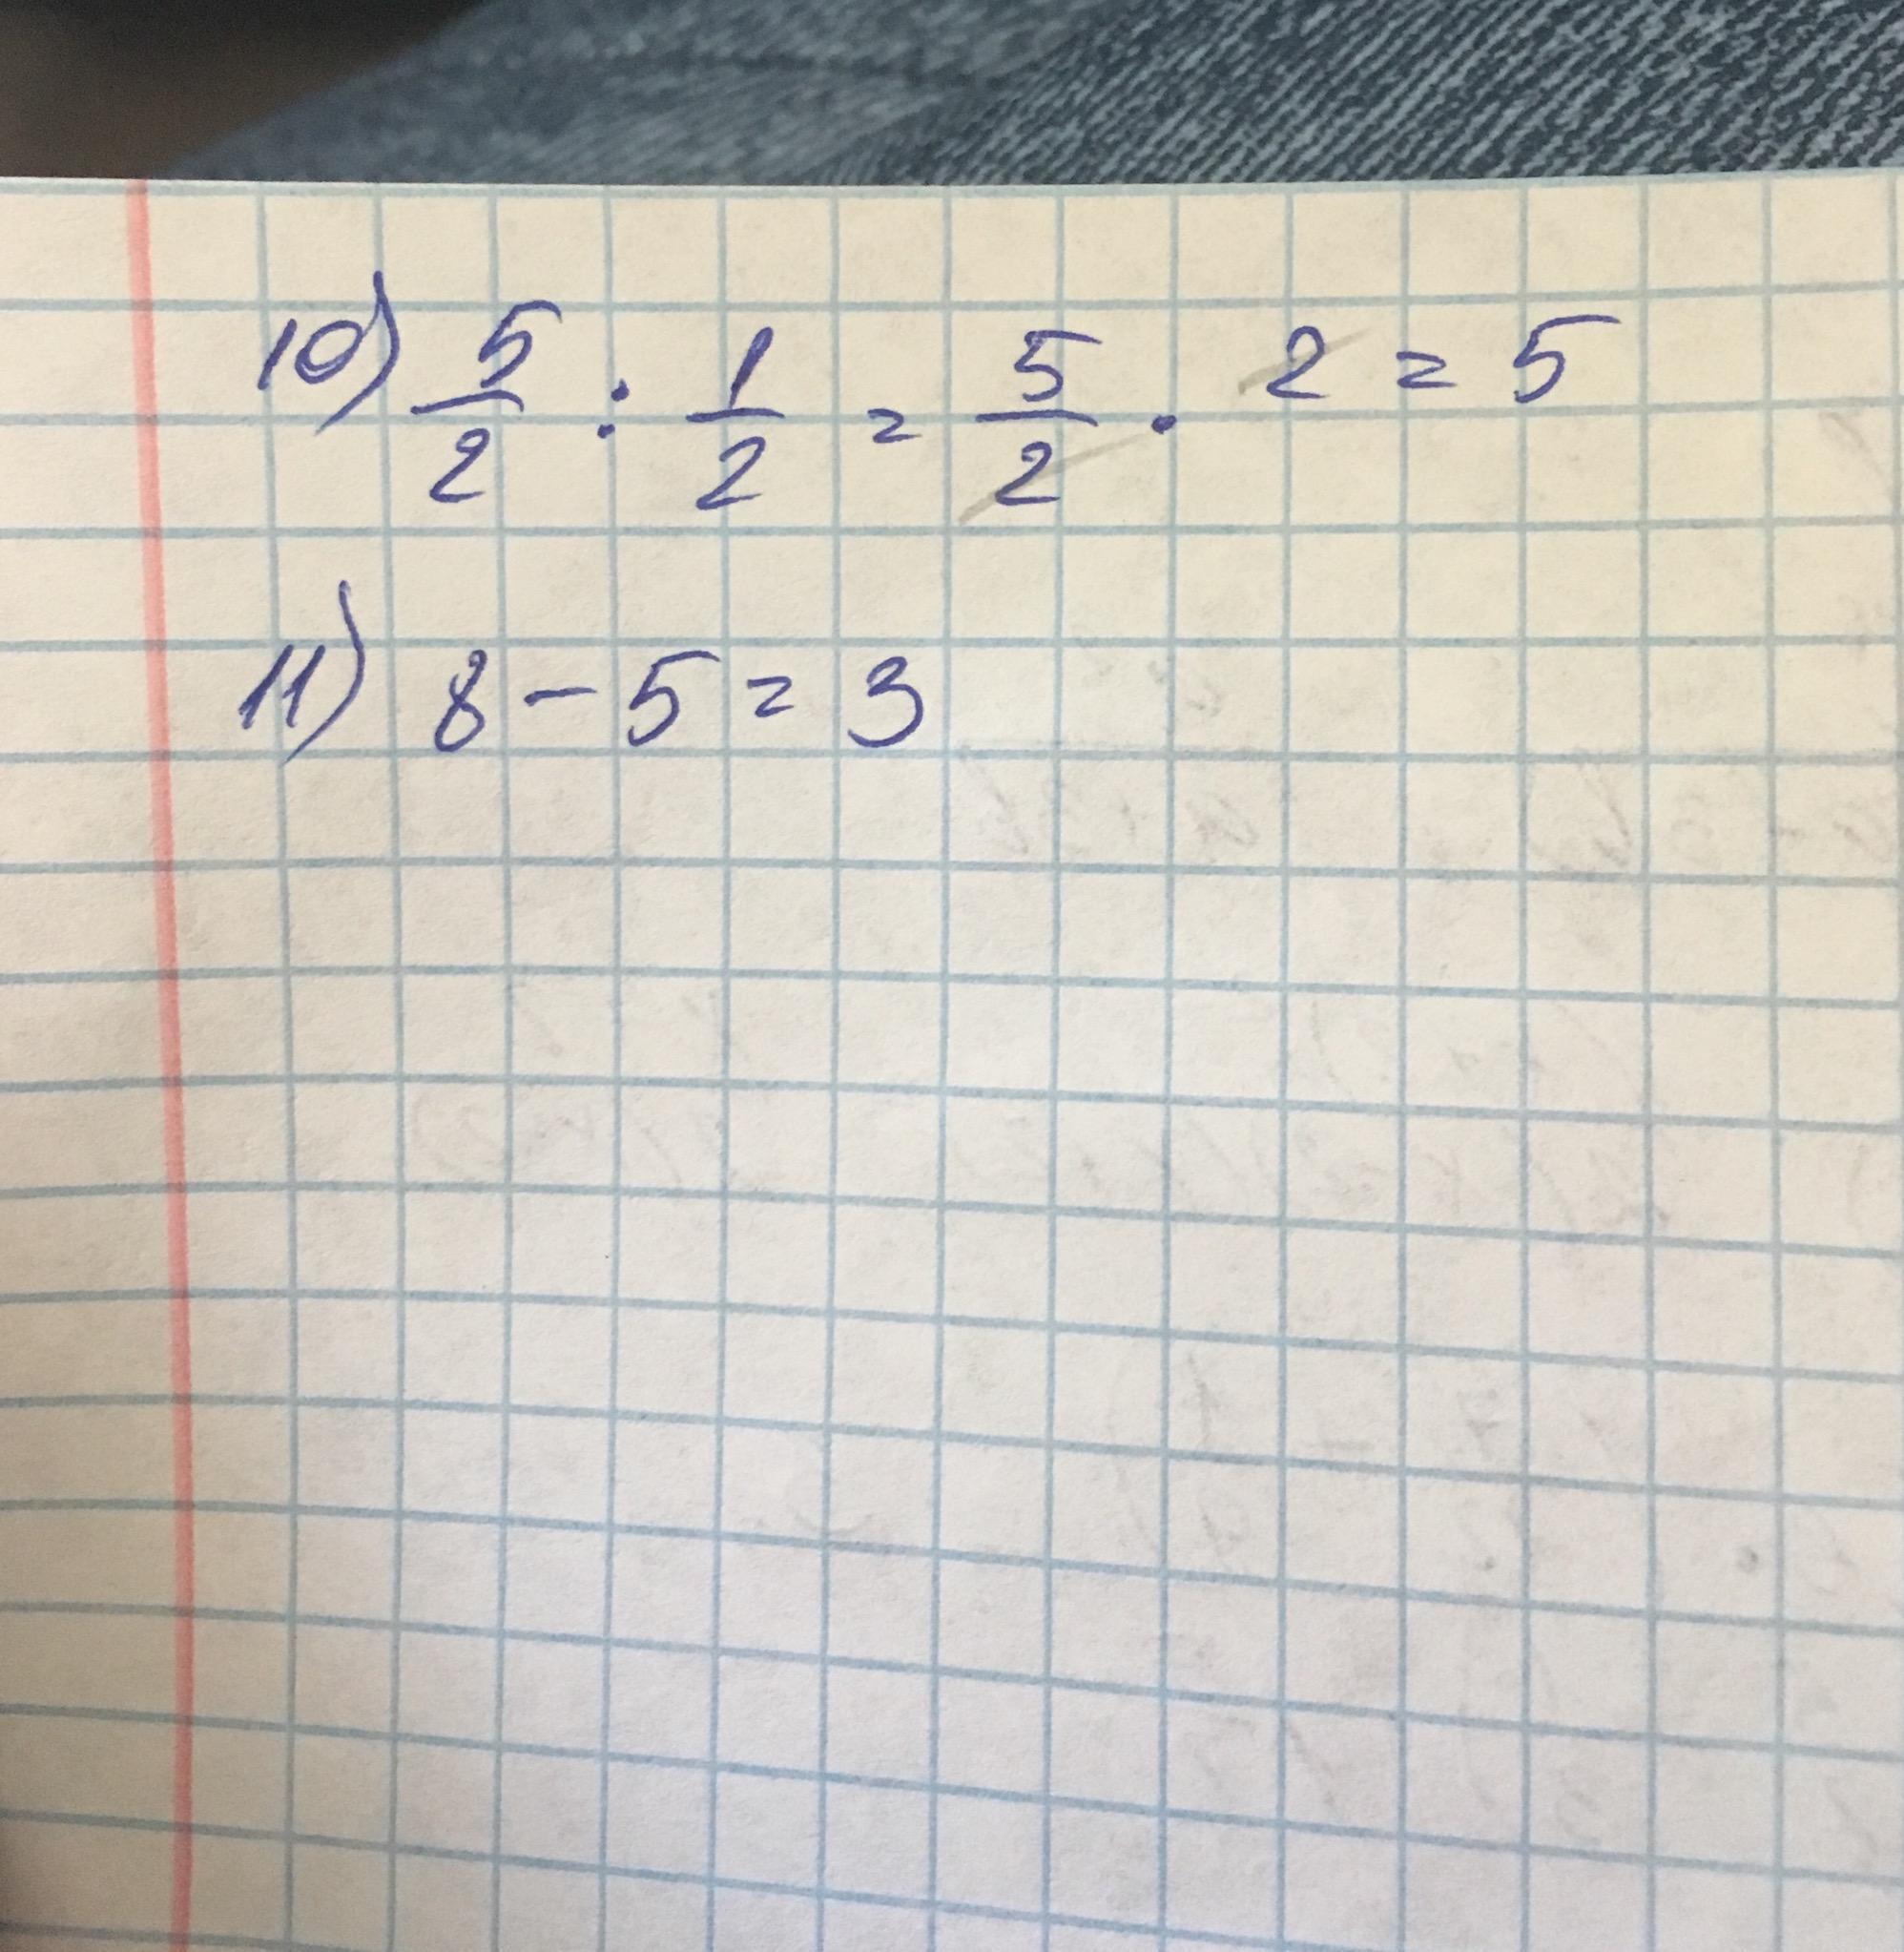 10) 5/2 : 1/2 = 5/2 · 2 = 5
11) 8 - 5 = 3